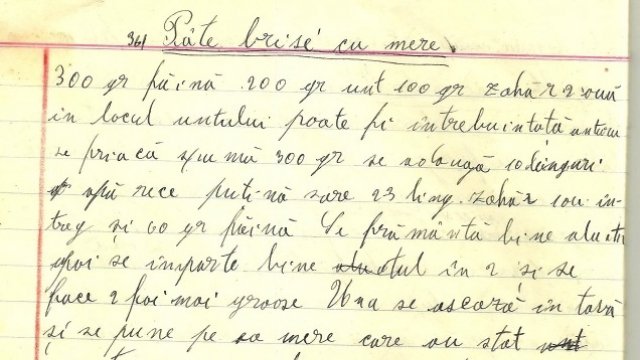 361 Pâte brisé cu mere.
300 gr făină 200 gr unt 100 gr zahăr 2 ouă
in locul untului poate fi întrebuintată
se 300 gr se adaugă 10 linguri
apă rece puțină sare 23 ling. zahăr 1 ou în-
treg și 60 gr făină Se frământă bine
apoi se imparte bine în 2 și se
face 2 foi mai groase Una se ascară in tavă
și se pune pe ea mere care au stat